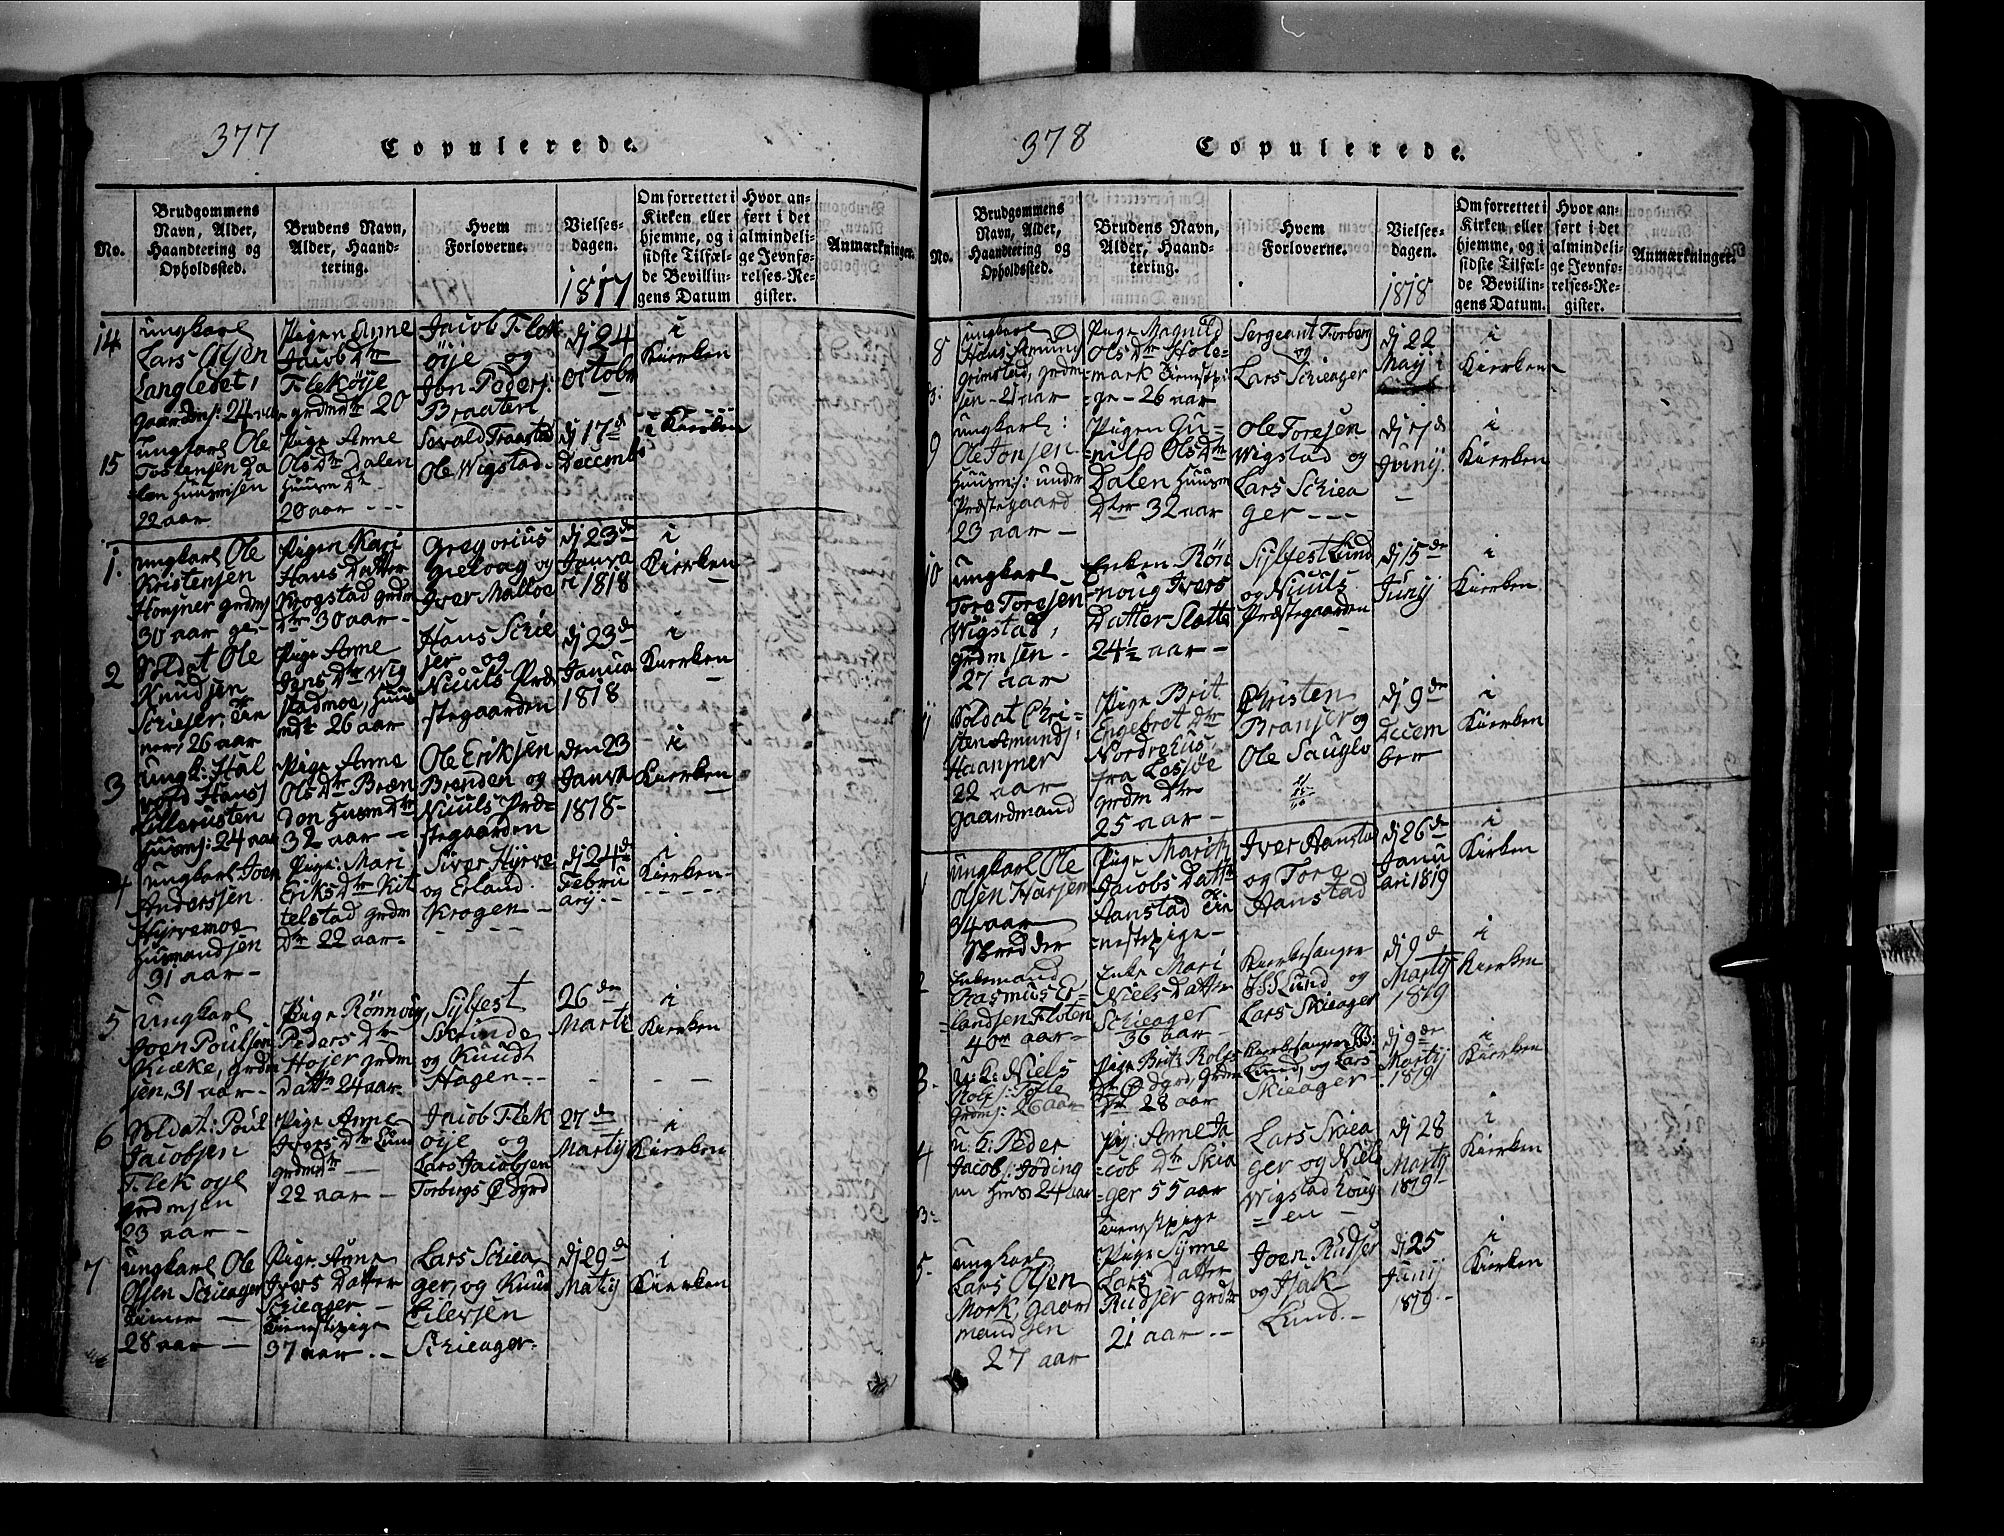 377
Copulerede.
No.
Brudgommens
Navn, Alder,
Haandtering og
Opholdssted.
Brudens Navn,
Alder, Haand-
tering.
Hvem
Forloverne.
Vielses-
dagen.
1817
Om forrettet i
Kirken eller
hjemme, og i
sidste Tilfæl-
de Bevillin-
gens Datum
Hvor an-
ført i det
almindeli-
ge Jevnfø-
relses-Re-
gister.
Anmærkninger.
14
ungkarl
Lars Olsen
Langledet,
gaardmsj: 24 aar
Pigen Anne
Jacob Dtr
Flekøije
grdmdtr 20
Jacob Flek
øije og
Jon Pedersj:
Braaten
dj 24
Octobr
i
Kierken
15
ungkarl Ole
Tostensen Da
len Huusmsen
22 aar
Pige Anne
Ols Dtr Dalen
Huusm Dtr
20 aar - - -
Sevald Traastad
Ole Wigstad -
dj 17de
Decembr
i Kierken
1.
ungkarl Ole
Kristensen
grdmsj
30 aar
Pigen Kari
Hans Datter
Krogstad grdm
Dtr 30 aar -
Gregorius
Gielvag og
Iver Malloe
dj 23de
Janua
ri 1818
i
Kierken
2
Soldat Ole
Knudsen
26 aar
Pige Anne
Jens Dtr Wig
stadmoe, Huus
mdt 26 aar
Hans Schie
ser og
Niuuls Præ
stegaarden
dj 23de
Janua
1818
i
Kierken
3
ungk: Hal
vord Hansj
Lillerusten
Huusmsj: 24 aar
Pige Anne
Ols Dtr Bræn
den Husm Dtr
32 aar -
Ole Eriksen
Brenden og
Niuuls Præ=
stegaarden
den 23
Janua
1818 -
i
Kierken
4
ungkarl Joen
Anderssen
Hyrvemoe
Husmandsen
31 aar -
Pige Mari
Eriks Dtr Kit
telstad grdm
Dtr 22 aar =
Siver Hyrve
og Erland
Krogen -
dj 24de
Febru
arij - -
i
Kierken -
5
ungkarl
Joen Poulsen
Kieke, grdm
sen, 31 aar -
Pige Rönnoug
Peders Dtr
Hojer grdm
Dattr 24 aar -
Syljest
Skrinde
og Knudt
Hagen - -
26de
Marti
i
Kierken
6
Soldat: Poul
Jacobsen
Flek oye
grdmsen
23 aar -
Pige Anne
Ivers Dtr Lund
grdmdtr -
22 aar -
Jacob Flek
øije og
Lars Jacobsen
Torbergs Ødgrd
27de
Martij
i
Kierken
7
ungkarl Ole
Olsen Schieager
Tiener -
28 aar -
Pige Anne
Ivers Datter
Schieager -
Tienestepige
37 aar. -
Lars Schiea
ger, og Knud
Eilevsen
Schieager -
dj 29de
Matij
i
Kierken
378
Copulerede.
No.
Brudgommens
Navn, Alder,
Haandtering og
Opholdssted.
Brudens Navn,
Alder, Haand-
tering.
Hvem
Forloverne.
Vielses-
dagen.
1818
Om forrettet i
Kirken eller
hjemme, og i
sidste Tilfæl-
de Bevillin-
gens Datum.
Hvor an-
ført i det
almindeli-
ge Jevnfø-
relses-Re-
gister.
Anmærkninger.
8
ungkarl
Hans Amundsj
Grimstad, grdm
sen - 21 aar
Pige Magnild
Ols Dtr Hole=
=mark Tienestpi
=ge - 26 aar
Sergeant Torberg
og
Lars Schieager
dj 22
Maij
i
Kierken
9
ungkarl:
Ole Jonsen
Huusmsj: under
Præstegaard
23 aar -
Pigen Gu=
=nild Ols Dtr
Dalen Huusm
Dter 32 aar
Ole Toresen
Wigstad og
Lars Schiea
ger - - -
Junij.
i
Kierken
10
ungkarl
Tore Toresen
Wigstad,
grdmsen -
27 aar
Enken Rön
=noug Ivers
Datter Slotte
24½ aar -
Syljest Lund
og Niuuls
Præstegaarden
dj 15de
Junij
i
Kierken
Soldat Chri=
sten Amundsj:
Haansner
22 aar
gaardmand
Pige Brit
Engebret Dtr
Nordrehuus
fra Lesjøe
grdm Dtr
25 aar -
Christen
Branser og
Ole Sauglo
dj 9de
Decem
ber
i
Kierken
1
ungkarl Ole
Olsen Harsem
34 aar
Skredder
Pige Marith
Jacobs Dattr
Aanstad Tie
=nestepige -
Iver Aanstad
og Tore
Aanstad
dj 26de
Janu
ari 1819
i
Kirken
2
Enkemand
Rasmus Er=
=landsen Floten
40 aar -
Enke Mari
Niels Datter
Schieager
36 aar -
Kierkesanger
Lund og
Lars Skieager
dj 9d
Martij
1819
i
Kierken
3.
u: k: Niels
Rolfsj: Tolle
grdmsj: 26 aar
Pige Brit Rolfs
Dtr Ødgrd, grdm
Dtr 28 aar
Kierkesanger
Lund, og Lars
Skieager
dj 9de
Martij
1819
i
Kierken
4
u. k. Peder
Jacobsj:
24 aar
Pig: Anne Ja
=cob Dtr Skia
=ger 55 aar
Tienestpige
Lars Skiea
ger og Niels
Wigstad houg
= en -
dj 28
Martij
1819 -
i
Kierken
5.
ungkarl
Lars Olsen
Mork, gaard
mandsen
27 aar
Pige Synne
Lars Datter
Rudser grdm
21 aar. -
Joen Rudser
og Isak
Lund. -
dj 25
Junij
1819 -
i
Kierken